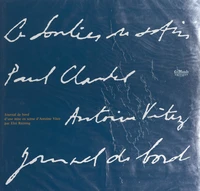 Le Soulier de satin
Paul Claudel
Antoine Vitez
Journal de bord
Journal de bord
d'une mise en scène d'Antoine Vitez
par Eloi Recoing